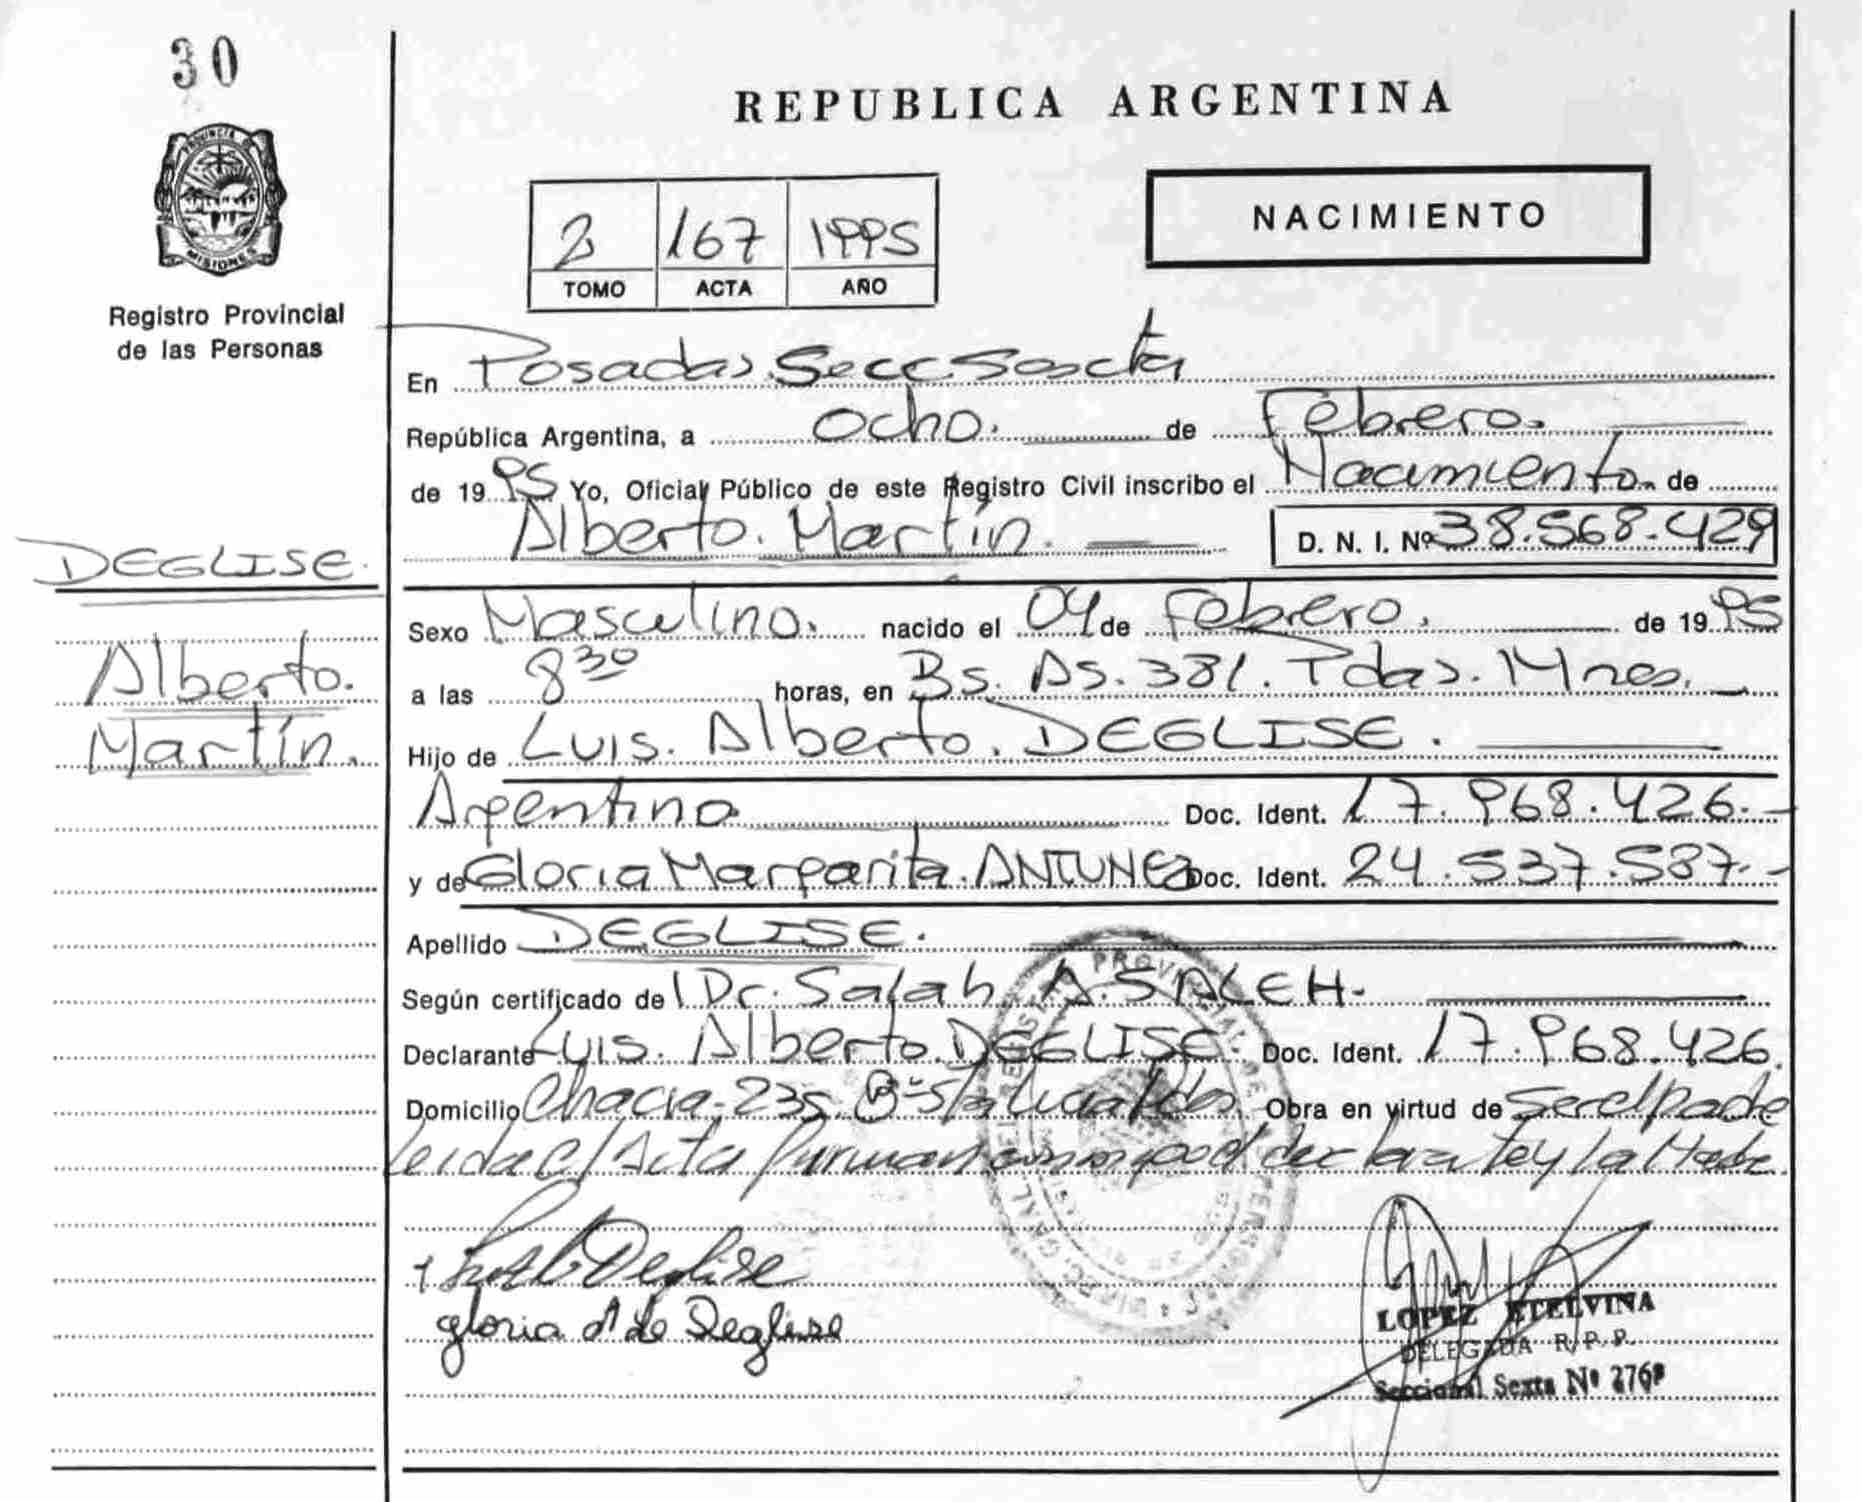 30
PROVINCIA DE
MISIONES
Registro Provincial
de las Personas
DEGLISE.
Alberto.
Martín.
REPUBLICA ARGENTINA
2 167 1995
TOMO ACTA AÑO
NACIMIENTO
En Posadas. Secc Sexta
República Argentina, a ocho. de Febrero.
de 19 95 Yo, Oficial Público de este Registro Civil inscribo el Nacimiento. de
Alberto. Martín. D. N. I. Nº 38.568.429
Sexo Masculino. nacido el 04 de Febrero. de 19 95
a las 8 30 horas, en Bs. As. 381. Pdas. Mnes.
Hijo de Luis. Alberto. DEGLISE.
Argentino Doc. Ident. 17.968.426.-
y de Gloria Margarita. ANTUNEZ Doc. Ident. 24.537.587.-
Apellido DEGLISE.
Según certificado de Dr. Salah A. SALEH.
Declarante Luis. Alberto. DEGLISE. Doc. Ident. 17.968.426.
Domicilio Chacra 235 Bº Sta Lucia Pdas Obra en virtud de Ser el padre
leida el Acta firman el declarante y la Madre.
Deglise
gloria A de Deglise
LOPEZ ETELVINA
DELEGADA R. P. P.
Seccional Sexta Nº 2768